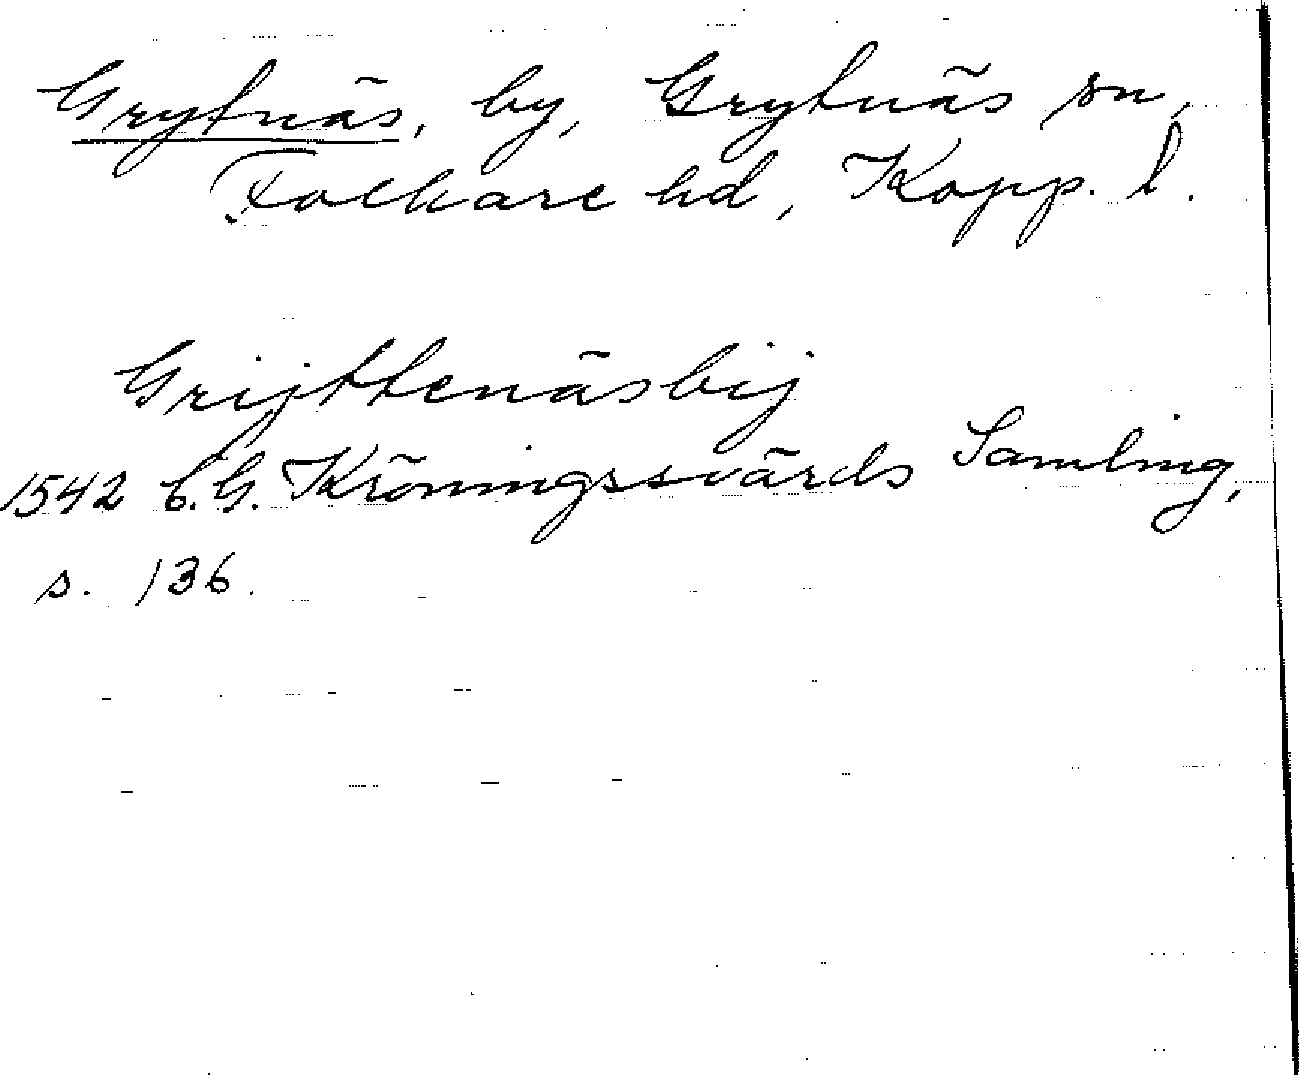 Grytnäs, by, Grytnäs sn,
Folkare hd, Kopp. l.
Grijttenäsbij
1542 C.G. Kröningssvärds Samling,
s. 136.